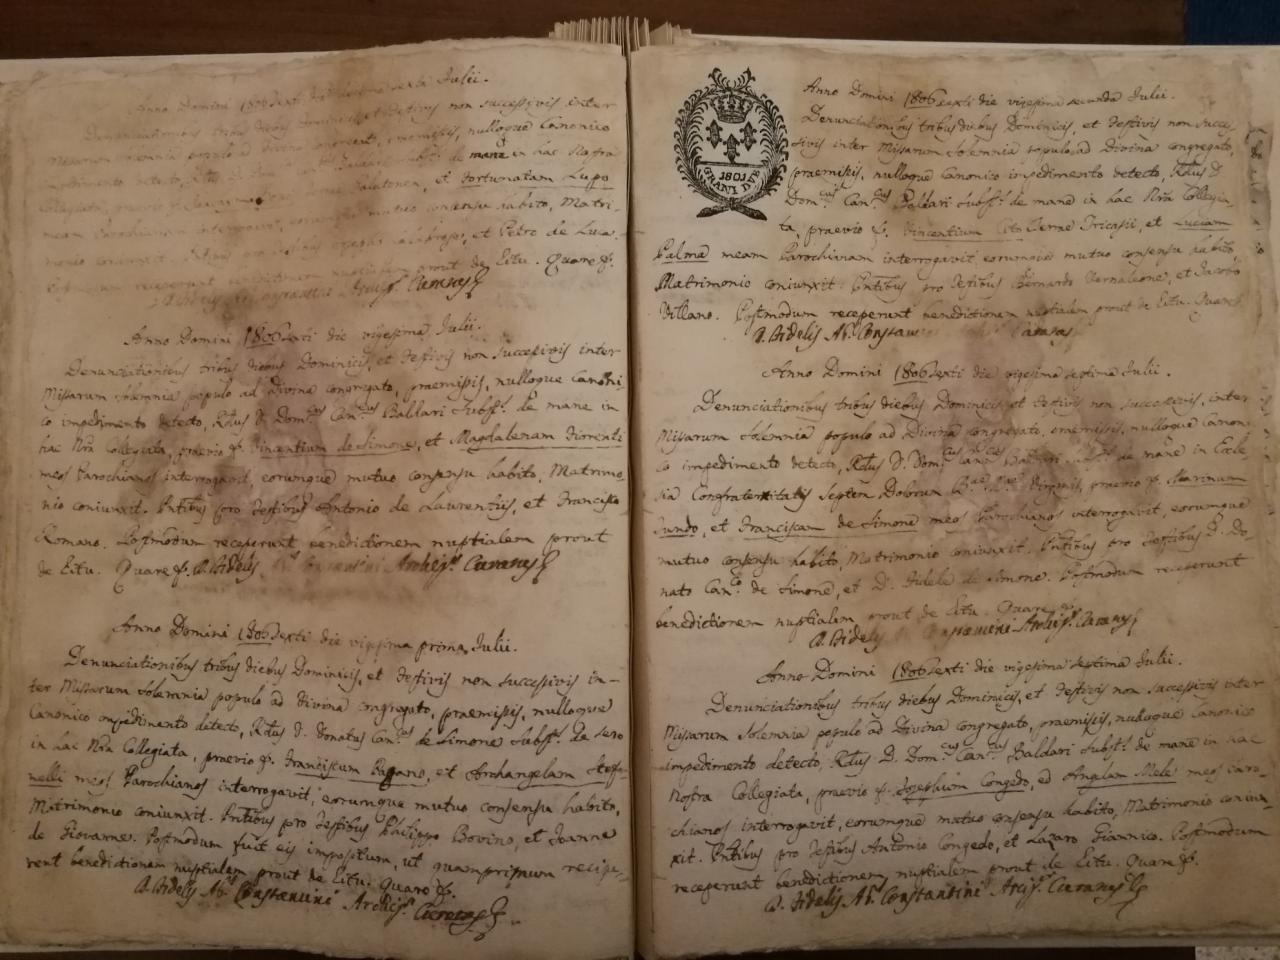 Anno Domini 1806 sexti die vigesima sexta Julii.
Denunciationibus tribus diebus Dominicis, et Festivis non successivis inter
Missarum solemnia populo ad Divina congregato, praemissis, nulloque Canonico
impedimento detecto, de mane in hac Nostra
Collegiata, et Fortunatam Lupo
meam Parochianam interrogavi, eorumque mutuo consensu habito, Matri-
monio coniunxit. et Petro de Luca.
receperunt benedictionem nuptialem prout de Ritu. Quare &.
Archip. Curatus
Anno Domini 1806 sexti die vigesima Julii.
Denunciationibus tribus diebus Dominicis, et Festivis non successivis inter
Missarum solemnia populo ad Divina congregato, praemissis, nulloque Canoni-
co impedimento detecto, Rdus D. Dom.cus Can.cus Baldari Subst. de mane in
hac Nra Collegiata, praevio &. Vincentium de Simone, et Magdalenam Fiorenti
meos Parochianos interrogavit, eorumque mutuo consensu habito, Matrimo-
nio coniunxit. Pntibus pro Testibus Antonio de Laurentiis, et Francisco
Romano. Postmodum receperunt benedictionem nuptialem prout
de Ritu. Quare &. A. Fidelis Ab. Constantini Archip. Curatus
Anno Domini 1806 sexti die vigesima prima Julii.
Denunciationibus tribus diebus Dominicis, et Festivis non successivis in-
ter Missarum solemnia populo ad Divina congregato, praemissis, nulloque
Canonico impedimento detecto, Rdus D. Donatus Can.cus de Simone Subst. de sero
in hac Nra Collegiata, praevio &. Franciscum Pagano, et Archangelam Stefa-
nelli meos Parochianos interrogavit, eorumque mutuo consensu habito,
Matrimonio coniunxit. Pntibus pro Testibus Philippo Bovino, et Joanne
de Giovanne. Postmodum fuit eis impositum, ut quamprimum recipe-
rent benedictionem nuptialem prout de Ritu. Quare &.
A. Fidelis Ab. Constantini Archip. Curatus
1801
GRANI DUE
Anno Domini 1806 sexti die vigesima secunda Julii.
Denunciationibus tribus diebus Dominicis, et Festivis non succes-
sivis inter Missarum solemnia populo ad Divina congregato,
praemissis, nulloque Canonico impedimento detecto, Rdus D.
Dom.cus Can.cus Baldari Subst. de mane in hac Nra Collegia-
ta, praevio &. Vincentium Cito Terrae Tricasii, et Luciam
Palma meam Parochianam interrogavit, eorumque mutuo consensu habito,
Matrimonio coniunxit. Pntibus pro Testibus Bernardo Vernaleone, et Jacobo
Villano. Postmodum receperunt benedictionem nuptialem prout de Ritu. Quare
A. Fidelis Ab. Constantini Curatus
Anno Domini 1806 sexti die vigesima septima Julii.
Denunciationibus tribus diebus Dominicis, et Festivis non successivis, inter
Missarum solemnia populo ad Divina congregato, praemissis, nulloque Canoni-
co impedimento detecto, Rdus D. Dom.cus Can.cus Baldari Subst. de mane in Eccle-
sia Confraternitatis Septem Dolorum Virginis, praevio &. Marinum
Sundo, et Franciscam de Simone meos Parochianos interrogavit, eorumque
mutuo consensu habito, Matrimonio coniunxit. Pntibus pro Testibus D. Do-
nato Can.co de Simone, et D. Fidele de Simone. Postmodum receperunt
benedictionem nuptialem prout de Ritu. Quare &.
A. Fidelis Ab. Constantini Archip. Curatus
Anno Domini 1806 sexti die vigesima septima Julii.
Denunciationibus tribus diebus Dominicis, et Festivis non successivis inter
Missarum solemnia populo ad Divina congregato, praemissis, nulloque Canonico
impedimento detecto, Rdus D. Dom.cus Can.cus Baldari Subst. de mane in hac
Nostra Collegiata, praevio &. Josephum Congedo, ed Anglam Mele meos Paro-
chianos interrogavit, eorumque mutuo consensu habito, Matrimonio coniun-
xit. Pntibus pro Testibus Antonio Congedo, et Lazaro Giannico. Postmodum
receperunt benedictionem nuptialem prout de Ritu. Quare &.
A. Fidelis Ab. Constantini Arcip. Curatus